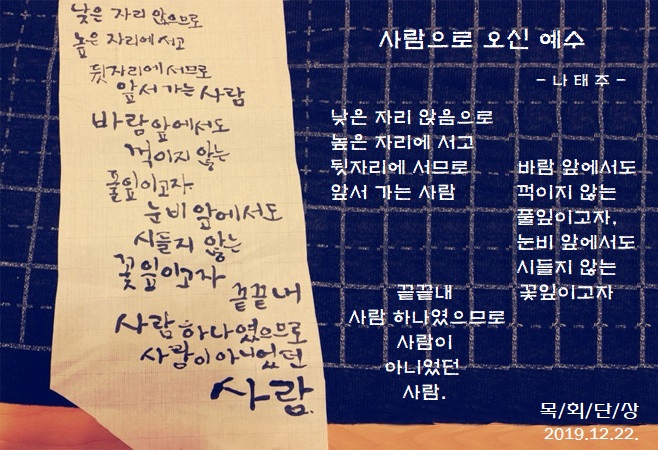 낮은 자리 앉으므로
높은 자리에 서고
뒷자리에 서므로
앞서 가는 사람
바람 앞에서도
꺽이지 않는
풀잎이고자,
눈비 앞에서도
시들지 않는
꽃잎이고자
끝끝내
사람 하나였으므로
사람이 아니었던
사람.
사람으로 오신 예수
- 나 태 주 -
낮은 자리 앉음으로
높은 자리에 서고
뒷자리에 서므로
앞서 가는 사람
바람 앞에서도
꺽이지 않는
풀잎이고자,
눈비 앞에서도
시들지 않는
꽃잎이고자
끝끝내
사람 하나였으므로
사람이
아니였던
사람.
목/회/단/상
2019.12.22.